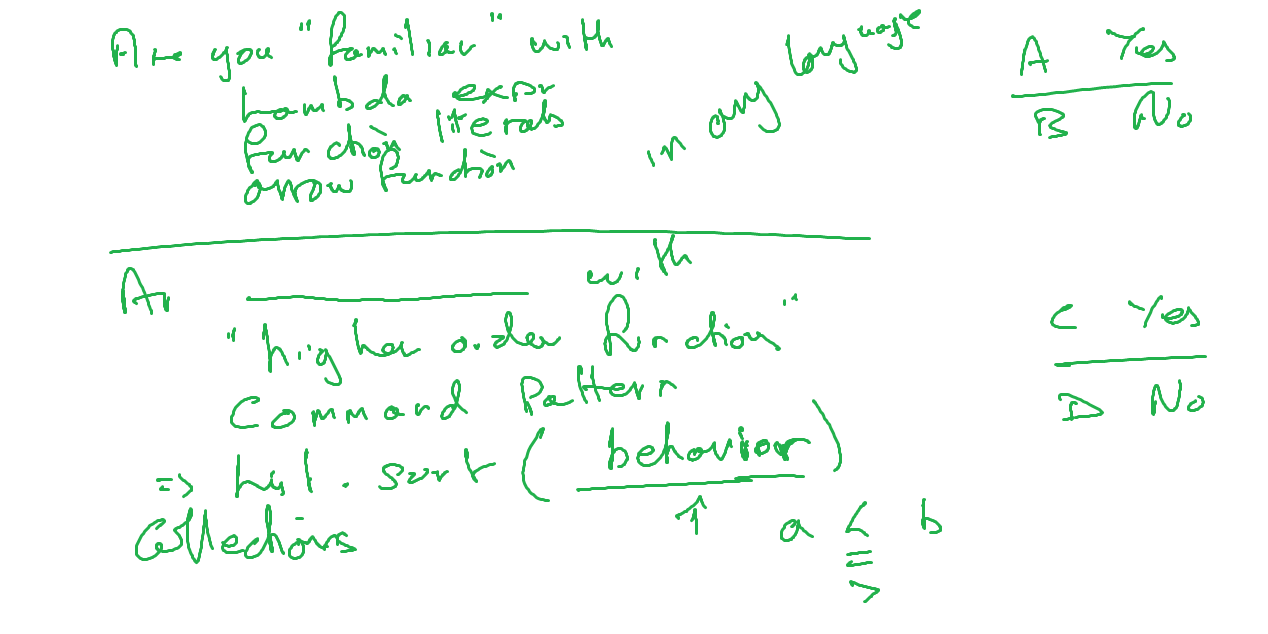 Are you "familiar" with
Lambda expr
function literals
arrow function
in any language
A Yes
B No
Ar ______ with
"higher order function"
Command Pattern
=> list.sort( behavior )
Collections
↑ a < b
=
>
C Yes
D No